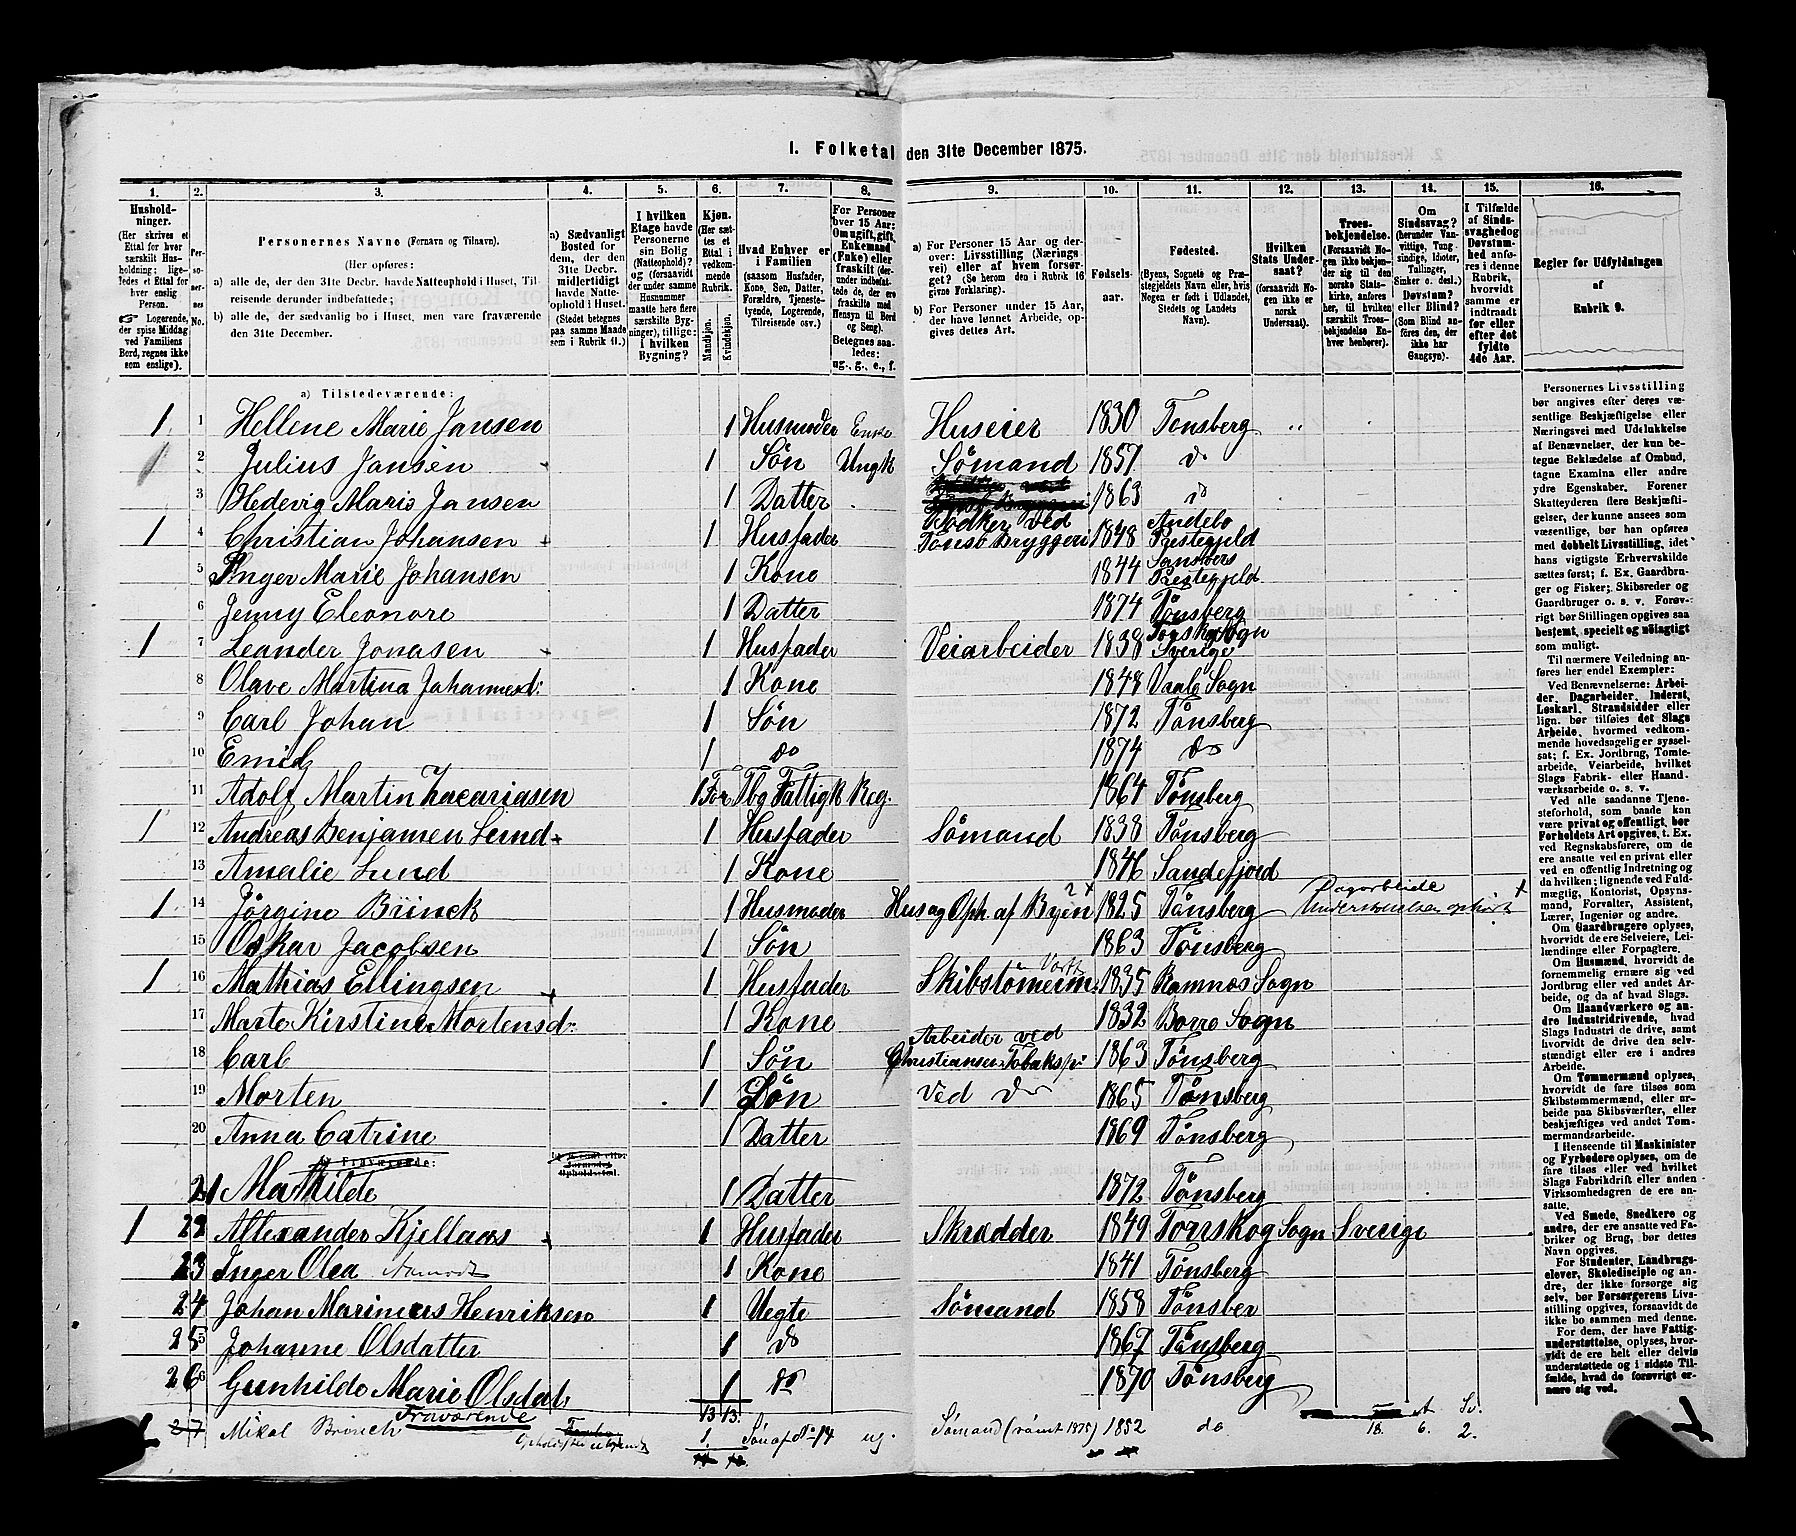 1. Folketal den 31te December 1875.
1. 2. 3. 4. 5. 6. 7. 8. 9. 10. 11. 12. 13. 14. 15. 16.
Hushold-
ninger.
(Her skrives et
Ettal for hver
særskilt Hus-
holdning; lige-
ledes et Ettal for
hver enslig
Person.
☞ Logerende,
der spise Middag
ved Familiens
Bord, regnes ikke
som enslige).
Per-
so-
ner-
nes
No.
Personernes Navne (Fornavn og Tilnavn).
(Her opføres:
a) alle de, der den 31te Decbr. havde Natteophold i Huset, Til-
reisende derunder indbefattede;
b) alle de, der sædvanlig bo i Huset, men vare fraværende
den 31te December.
a) Sædvanligt
Bosted for
dem, der den
31te Decbr.
midlertidigt
havde Natte-
ophold i Huset.
(Stedet betegnes
paa samme Maade
som i Rubrik 11.)
I hvilken
Etage havde
Personerne
sin Bolig
(Natteophold)?
og (forsaavidt
der under samme
Husnummer
maatte høre flere
særskilte Byg-
ninger), tillige:
i hvilken
Bygning?
Kjøn.
(Her sæt-
tes et
Ettal i
vedkom-
mende
Rubrik.
Mandkjøn.
Kvindekjøn.
Hvad Enhver er
i Familien
(saasom Husfader,
Kone, Søn, Datter,
Forældre, Tjeneste-
tyende, Logerende,
Tilreisende osv.)
For Personer
over 15 Aar:
Om ugift, gift,
Enkemand
(Enke) eller
fraskilt (der-
under indbefat-
tede de, der ere
fraskilte med
Hensyn til Bord
og Seng).
Betegnes saa-
ledes:
ug., g., e., f.
a) For Personer 15 Aar og der-
over: Livsstilling (Nærings-
vei) eller af hvem forsør-
get? (Se herom den i Rubrik 16
givne Forklaring).
b) For Personer under 15 Aar,
der have lønnet Arbeide, op-
gives dettes Art.
Fødsels-
aar.
Fødested.
(Byens, Sognets og Præ-
stegjeldets Navn eller, hvis
Nogen er født i Udlandet,
Stedets og Landets
Navn).
Hvilken
Stats Under-
saat?
(forsaavidt No-
gen ikke er
norsk
Undersaat).
Troes-
bekjendelse.
(Forsaavidt No-
gen ikke bekjen-
der sig til den
norske Stats-
kirke, anføres
her, til hvilken
særskilt Troes-
bekjendelse En-
hver henhører).
Om
Sindssvag?
(herunder Van-
vittige, Tung-
sindige, Idioter,
Tullinger,
Sinker o. desl.)
Døvstum?
eller Blind?
(Som Blind an-
føres den, der
ikke har
Gangsyn).
I Tilfælde
af Sinds-
svaghed og
Døvstum-
hed anfø-
res i denne
Rubrik,
hvorvidt
samme er
indtraadt
før eller
efter det
fyldte
4de Aar.
Regler for Udfyldningen
af
Rubrik 9.
a) Tilstedeværende:
1 1 Hellene Marie Jansen 1 Husmoder Enke Huseier 1830 Tønsberg
2 Julius Jansen 1 Søn Ungk Sømand 1857 do
3 Hedevig Maris Jansen 1 Datter 1863 do
1 4 Christian Johansen 1 Husfader Bødker ved Tønsb Bryggeri 1848 Andebo Prestegjeld
5 Inger Marie Johansen 1 Kone 1844 Prestegjeld
6 Jenny Eleonore 1 Datter 1874 Tønsberg
1 7 Leander Jonasen 1 Husfader Veiarbeider 1838 Torskog Sogn Sverige
8 Olave Martina Johannesd: 1 Kone 1848 Vaale Sogn
9 Carl Johan 1 Søn 1872 Tønsberg
10 Emil 1 do 1874 do
11 Adolf Martin Zacariasen 1 For Tbg Fattigk Reg. 1864 Tønsberg
1 12 Andreas Benjamen Lund 1 Husfader Sømand 1838 Tønsberg
13 Amalie Lund 1 Kone 1846 Sandefjord
1 14 Jörgine Brinck 1 Husmoder Hus og Oph. af Byen 1825 Tønsberg Dagarbeide
15 Oskar Jacobsen 1 Søn 1863 Tønsberg
1 16 Mathias Ellingsen 1 Husfader Skibstømerm: 1835 Ramnæs Sogn
17 Marte Kirstine Mortensd: 1 Kone 1832 Borre Sogn
18 Carl 1 Søn Arbeider ved Christiansens Tobaksf. 1863 Tønsberg
19 Morten 1 Søn ved do 1865 Tønsberg
20 Anna Catrine 1 Datter 1869 Tønsberg
b) Fraværende:
21 Mathilde 1 Datter 1872 Tønsberg
1 22 Allexander Kjellaas 1 Husfader Skrædder 1849 Torrskog Sogn Sverige
23 Inger Olea Aamodt 1 Kone 1841 Tønsberg
24 Johan Marineus Henriksen 1 Uegte Sømand 1858 Tønsber
25 Johanne Olsdatter 1 do 1867 Tønsberg
26 Gunhilde Marie Olsdat. 1 do 1870 Tønsberg
13 13.
Fraværende
27 Mikal Brinch 1. Søn af No 14 ug. Sømand (rømt 1875) 1852 do 18. 6. 2.
Personernes Livsstilling
bør angives efter deres væ-
sentlige Beskjæftigelse eller
Næringsvei med Udelukkelse
af Benævnelser, der kun be-
tegne Beklædelse af Ombud,
tagne Examina eller andre
ydre Egenskaber. Forener
Skatteyderen flere Beskjæfti-
gelser, der kunne ansees som
væsentlige, bør han opføres
med dobbelt Livsstilling, idet
hans vigtigste Erhvervskilde
sættes først; f. Ex. Gaardbru-
ger og Fisker; Skibsreder og
Gaardbruger o. s. v. Forøv-
rigt bør Stillingen opgives saa
bestemt, specielt og nøiagtigt
som muligt.
Til nærmere Veiledning an-
føres her endel Exempler:
Ved Benævnelserne: Arbei-
der, Dagarbeider, Inderst,
Løskarl, Strandsidder eller
lign. bør tilføies det Slags
Arbeide, hvormed vedkom-
mende hovedsagelig er syssel-
sat; f. Ex. Jordbrug, Tomte-
arbeide, Veiarbeide, hvilket
Slags Fabrik- eller Haand-
værksarbeide o. s. v.
Ved alle saadanne Tjene-
steforhold, som baade kan
være privat og offentligt, bør
Forholdets Art opgives, t. Ex.
ved Regnskabsførere, om de
ere ansatte ved en privat eller
ved en offentlig Indretning og
da hvilken; lignende ved Fuld-
mægtig, Kontorist, Opsyns-
mand, Forvalter, Assistent,
Lærer, Ingeniør og andre.
Om Gaardbrugere oplyses,
hvorvidt de ere Selveiere, Lei-
lændinge eller Forpagtere.
Om Husmænd, hvorvidt de
fornemmelig ernære sig ved
Jordbrug eller ved andet Ar-
beide, og da af hvad Slags.
Om Haandværkere og an-
dre Industridrivende, hvad
Slags Industri de drive, samt
hvorvidt de drive den selv-
stændigt eller ere i andres
Arbeide.
Om Tømmermænd oplyses,
hvorvidt de fare tilsøs som
Skibstømmermænd, eller ar-
beide paa Skibsværfter, eller
beskjæftiges ved andet Tøm-
mermandsarbeide.
I Henseende til Maskinister
og Fyrbødere oplyses, om de
fare tilsøs eller ved hvilket
Slags Fabrikdrift eller anden
Virksomhedsgren de ere an-
satte.
Ved Smede, Snedkere og
andre, der ere ansatte ved Fa-
briker og Brug, bør dettes
Navn opgives.
For Studenter, Landbrugs-
elever, Skoledisciple og an-
dre, der ikke forsørge sig
selv, bør Forsørgerens Livs-
stilling opgives, forsaavidt de
ikke bo sammen med denne.
For dem, der have Fattig-
understøttelse, oplyses, hvor-
vidt de ere helt eller delvis
understøttede og i sidste Til-
fælde, hvad de forøvrigt er-
nære sig ved.